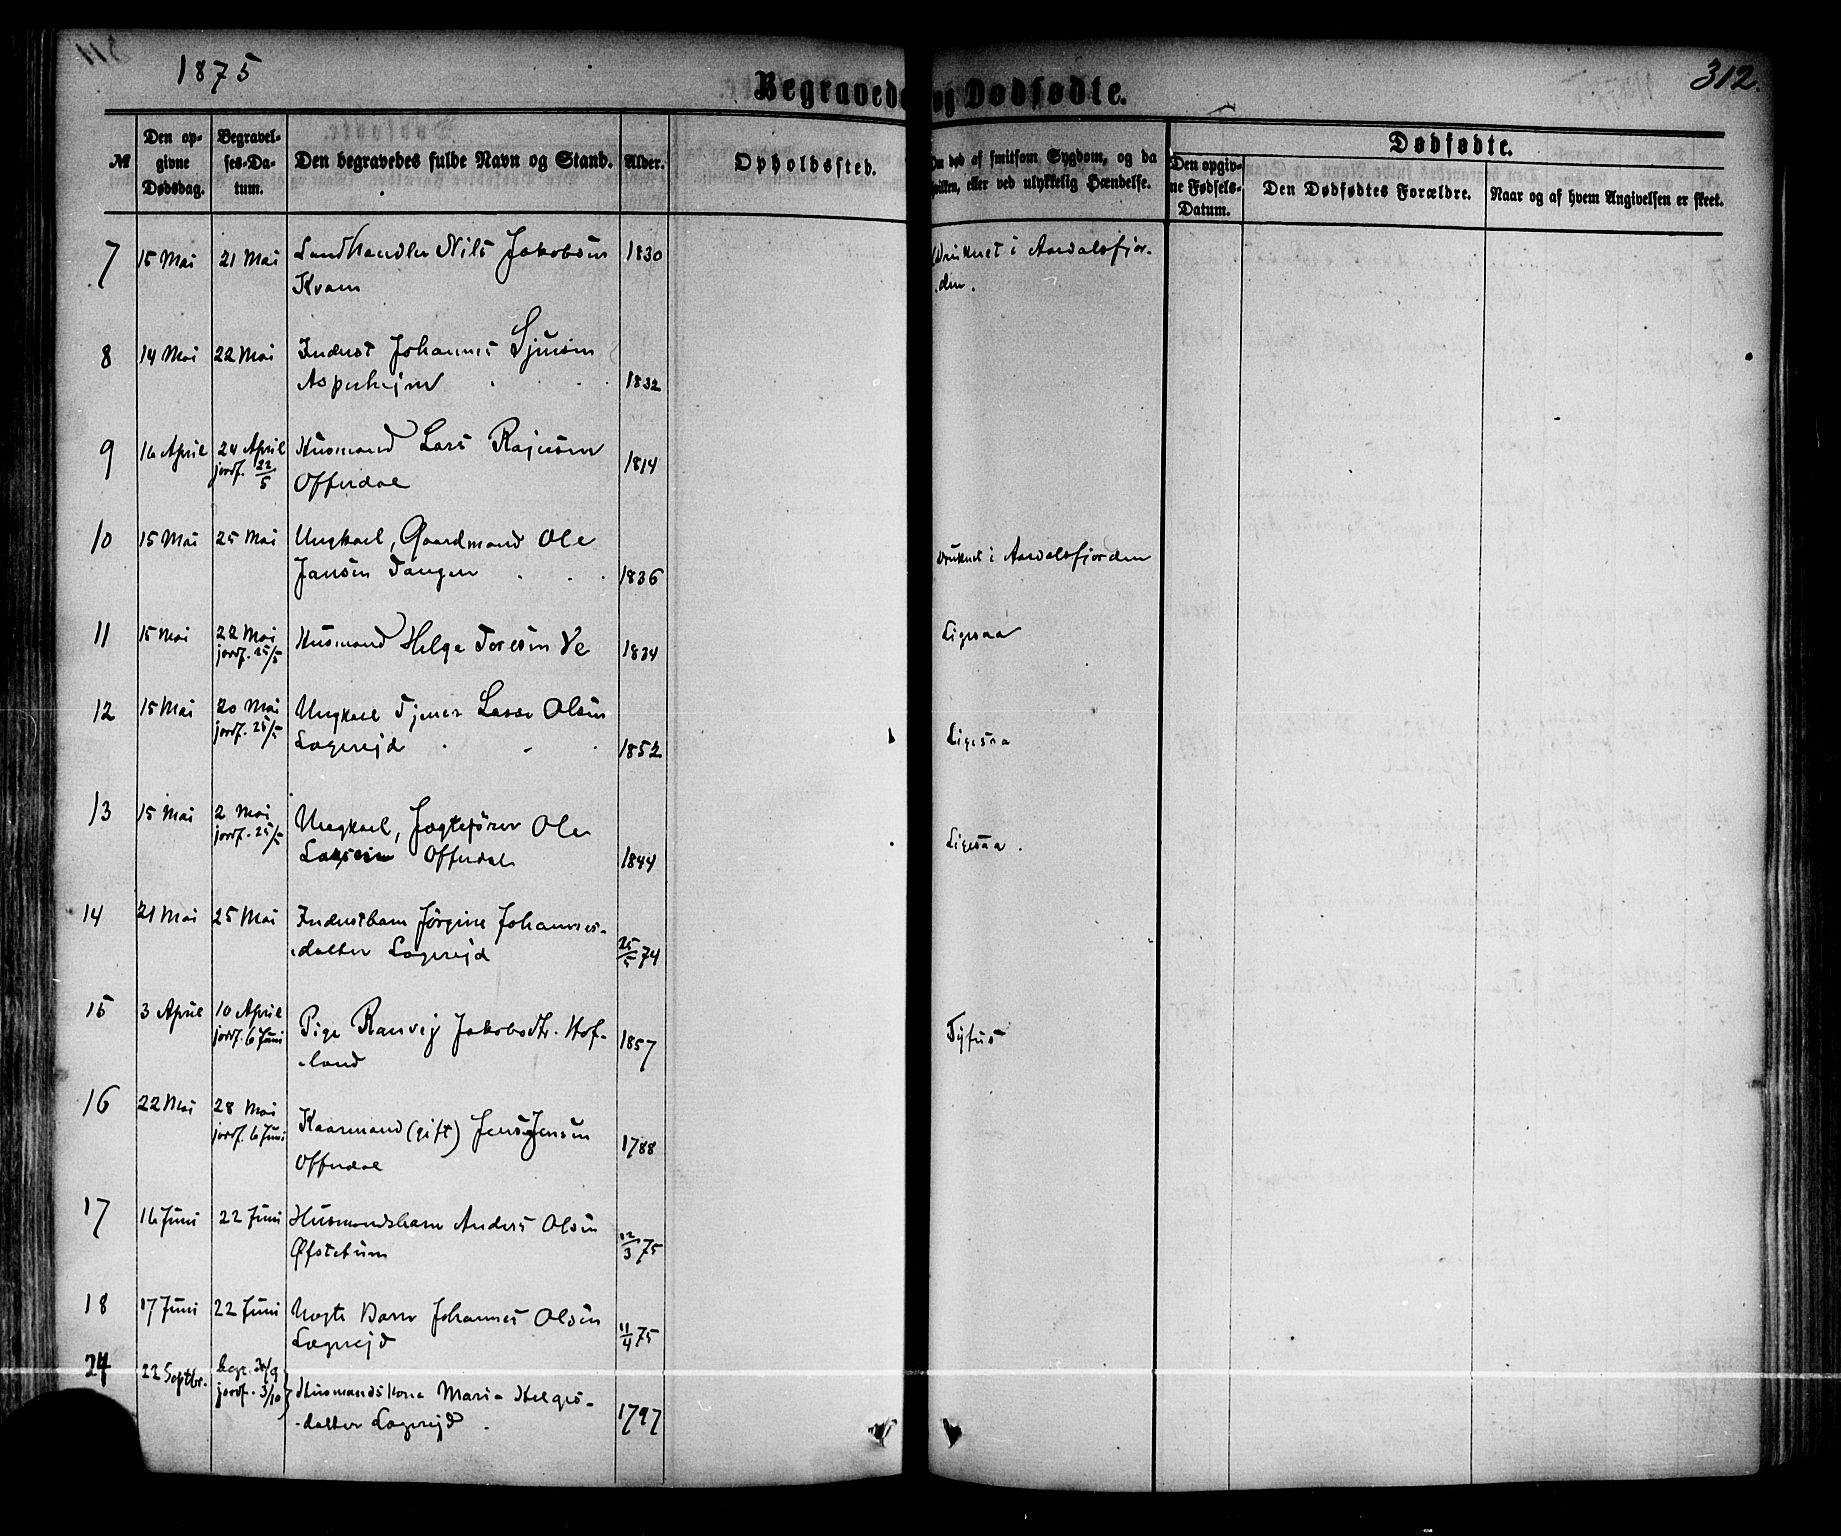 1875
312.
Begravede og Dødfødte.
№
Den opgivne Dødsdag.
Begravelses-Datum.
Den begravedes fulde Navn og Stand.
Alder.
Opholdssted.
af smitsom Sygdom, og da
hvilken, eller ved ulykkelig Hændelse.
Dødfødte.
Den opgivne Fødsels-Datum.
Den Dødfødtes Forældre.
Naar og af hvem Angivelsen er skeet.
7 15 Mai 21 Mai Landhandler Nils Jakobsen 1830 Druknet i Aardalsfjor-
Kvam den.
8 14 Mai 22 Mai Inderst Johannes Sjursen
Asperheim 1832
9 16 April 24 April Husmand Lars Rasmusen 1814
jordf. 22/5 Offerdal
10 15 Mai 25 Mai Ungkarl, Gaardmand Ole Druknet i Aardalsfjorden
Jansen Tangen 1836
11 15 Mai 22 Mai Husmand Helge Toresen Ve 1834 Ligesaa
jordf. 25/5
12 15 Mai 20 Mai Ungkarl Tjener Lasse Olsen Ligesaa
jordf. 25/5 Lægrejd 1852
13 15 Mai 2 Mai Ungkarl, Jægtefører Ole Ligesaa.
jordf. 25/5 Larsen Offerdal 1844
14 21 Mai 25 Mai Inderstbarn Jørgine Johannes-
datter Lægrejd 25/5 74
15 3 April 10 April Pige Ranvej Jakobsdtr. Hof- 1857 Tyfus
jordf. 6 Juni land
16 22 Mai 28 Mai Kaarmand (gift) Jens Jensen 1788
jordf. 6 Juni Offerdal
17 16 Juni 22 Juni Husmandsbarn Anders Olsen
Øfstetun 12/3 75
18 17 Juni 22 Juni Uægte Barn Johannes Olsen
Lægrejd 11/4 75
24 22 Septbr. begr. 30/9
jordf. 3/10 Husmandskone Maria Helges-
datter Lægrejd. 1797